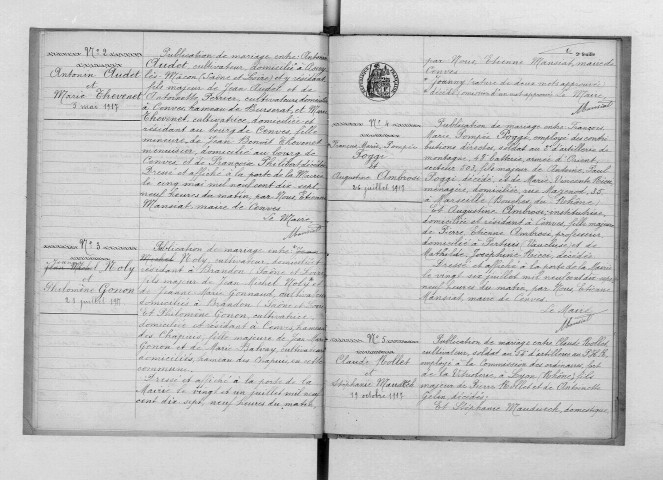 N° 2
Antonin Audet
et
Marie Thevenet
5 mai 1917
Publication de mariage entre Antonin
Audet, cultivateur, domicilié à
les-Mâcon (Saône et Loire) et y résidant
fils majeur de Jean Audet et de
Antoinette Perrier, cultivateurs domiciliés
à Cenves, hameau de et Marie
Thevenet, cultivatrice, domiciliée et
résidant au bourg de Cenves, fille
mineure de Jean Benoît Thevenet
menuisier, domicilié au bourg de
Cenves et de Françoise Philibert décédée
Dressé et affiché à la porte de la Mairie
le cinq mai mil neuf cent dix sept
neuf heures du matin, par Nous Etienne
Mansiat maire de Cenves
Le Maire,
Mansiat
N° 3
Noly
et
Philomène Gonon
21 juillet 1917
Publication de mariage entre
Noly, cultivateur, domicilié et
résidant à Brandon, Saône et Loire
fils majeur de Jean Michel Noly et
de Marie Gonnaud, cultivateurs
domiciliés à Brandon, Saône et Loire
Et Philomène Gonon, cultivatrice,
domiciliée et résidant à Cenves, hameau
des Chapuis, fille majeure de Jean Marie
Gonon et de Marie Bavay, cultivateurs
domiciliés, hameau des Chapuis, en cette
commune.
Dressé et affiché à la porte de la
Mairie le vingt et un juillet mil neuf
cent dix sept, neuf heures du matin,
2e feuille
par Nous Etienne Mansiat, maire de
Cenves
"Joanny" rature de deux mots approuvée
Le Maire
Mansiat
N° 4
François Marie Pompée
Poggi
et
Augustine Ambrose
26 juillet 1917
Publication de mariage entre François
Marie Pompée Poggi, employé des contri-
butions directes, soldat au 2e d'artillerie de
montagne, 48e batterie, armée d'Orient,
secteur 503, fils majeur de Antoine Paul
Poggi décédé, et de Marie Vincente Ricci
ménagère, domiciliée, rue 35
à Marseille, Bouches du Rhône,
Et Augustine Ambrose, institutrice,
domiciliée et résidant à Cenves, fille majeure
de Pierre Etienne Ambrose, professeur
domicilié à Vaucluse et de
Mathilde Joséphine décédée
Dressé et affiché à la porte de la Mairie
le vingt six juillet mil neuf cent dix sept
neuf heures du matin, par Nous Etienne
Mansiat, maire de Cenves.
Le Maire
Mansiat
N° 5
Claude Rollet
et
Stéphanie
19 octobre 1917
Publication de mariage entre Claude Rollet,
cultivateur, soldat au 55e d'artillerie
employé à la Commission des ordinaires, fort
de la Vitriolerie, à Lyon (Rhône), fils
majeur de Pierre Rollet et de Antoinette
Gelin, décédés
Et Stéphanie domestique,